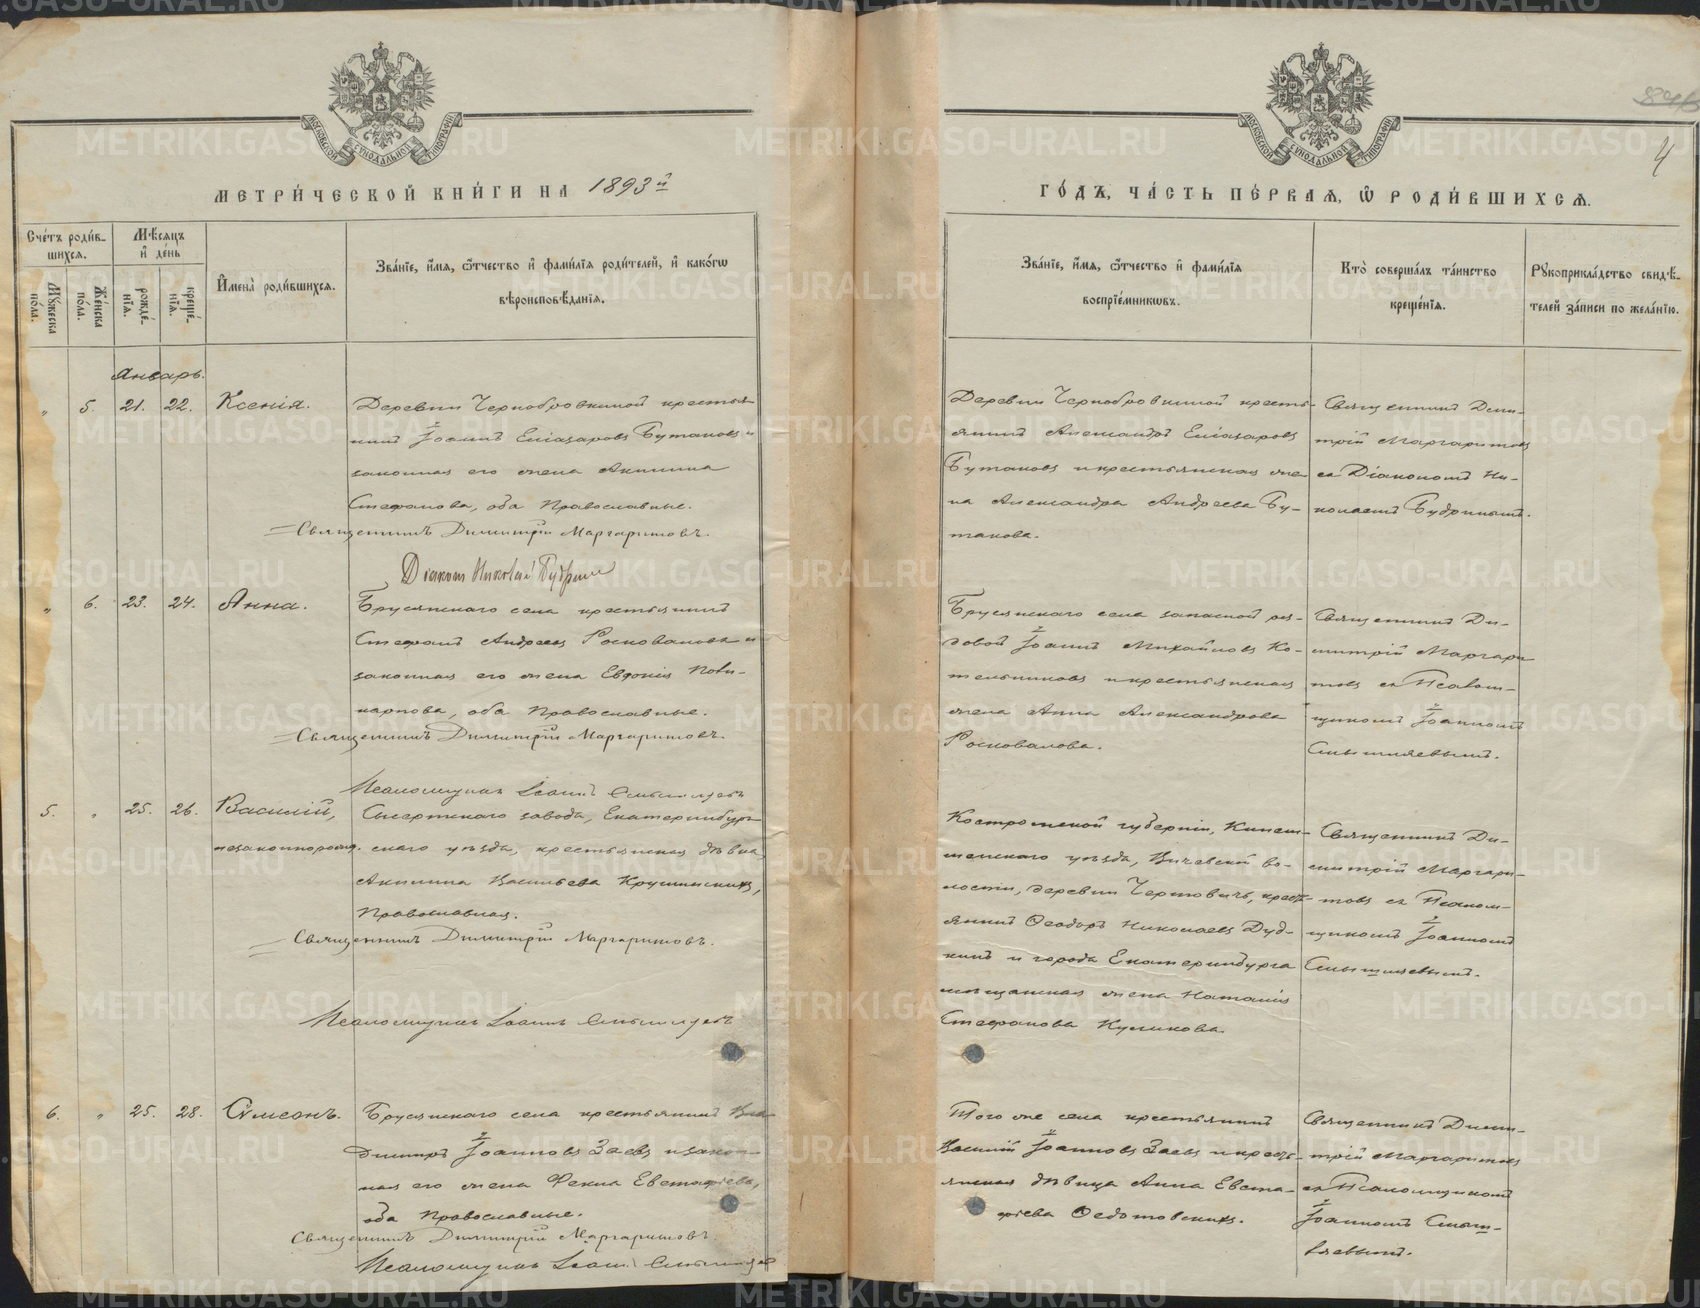 МЕТРИ́ЧЕСКОЙ КНИ́ГИ НА 1893й
Сче́тъ роди́в-
шихсѧ.
Мѣ́сѧцъ
и҆ де́нь
Мꙋ́жеска
по́ла.
Же́нска
по́ла.
рожде́-
нїѧ.
креще́-
нїѧ.
И҆мена̀ роди́вшихсѧ.
Зва́нїе, и҆́мѧ, ѻ҆́тчество и҆ фами́лїѧ роди́телей, и҆ како́гѡ
вѣроисповѣ́данїѧ.
Январь.
" 5. 21. 22. Ксенія.
Деревни Чернобровкиной кресть-
нинъ Іоаннъ Елiазаровъ Бутаковъ и
законная его жена Акилина
Стефанова, оба Православные.
Священникъ Димитрій Маргаритовъ.
Діаконъ Николай Будринъ
" 6. 23. 24. Анна.
Бруснянскаго села крестьянинъ
Стефанъ Андреевъ Росковаловъ и
законная его жена Евдокія Поли-
карпова, оба Православные.
Священникъ Димитрій Маргаритовъ.
Псаломщикъ Іоаннъ Смышляевъ
5. " 25. 26. Василій,
незаконнорожд.
Сысертскаго завода, Екатеринбург-
скаго уѣзда, крестьянская дѣвка,
Акилина Васильева Крушинскихъ,
Православная.
Священникъ Димитрій Маргаритовъ.
Псаломщикъ Іоаннъ Смышляевъ
6. " 25. 28. Сѵмеонъ.
Бруснянскаго села крестьянинъ Вла-
димиръ Іоанновъ Заевъ и закон-
ная его жена Фекла Евстафіева,
оба Православные.
Священникъ Димитрій Маргаритовъ.
Псаломщикъ Іоаннъ Смышляевъ
4
ГО́ДЪ, ЧА́СТЬ ПЕ́РВАѦ, Ѡ҆ РОДИ́ВШИХСѦ.
Зва́нїе, и҆́мѧ, ѻ҆́тчество и҆ фами́лїѧ
воспрїе́мникѡвъ.
Кто̀ соверша́лъ та́инство
креще́нїѧ.
Рꙋкоприкла́дство свидѣ́-
телей за́писи по жела́нїю.
Деревни Чернобровкиной кресть-
янинъ Александръ Елiазаровъ
Бутаковъ и крестьянская же-
на Александра Андреева Бу-
такова.
Священникъ Дими-
трій Маргаритовъ
съ Діакономъ Ни-
колаемъ Будринымъ.
Бруснянскаго села запасной ря-
довой Іоаннъ Михайловъ Ко-
тельниковъ и крестьянская
жена Анна Александрова
Росковалова.
Священникъ Ди-
митрій Маргари-
товъ съ Псалом-
щикомъ Іоанномъ
Смышляевымъ.
Костромской губерніи, Кинеш-
емскаго уѣзда, Вичевской во-
лости, деревни Чертовичъ, кресть-
янинъ Ѳеодоръ Николаевъ Дуд-
кинъ и города Екатеринбурга
мѣщанская жена Наталія
Стефанова Куликова.
Священникъ Ди-
митрій Маргари-
товъ съ Псалом-
щикомъ Іоанномъ
Смышляевымъ.
Того же села крестьянинъ
Василій Іоанновъ Заевъ и кресть-
янская дѣвица Анна Евста-
фіева Ѳедотовскихъ.
Священникъ Дими-
трій Маргаритовъ
съ Псаломщикомъ
Іоанномъ Смыш-
ляевымъ.